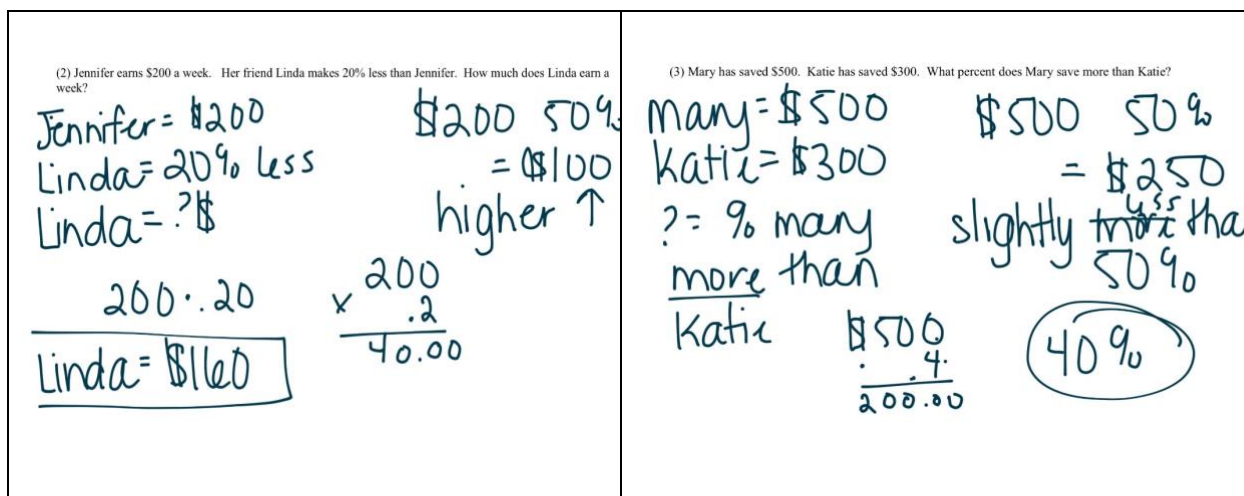 (2) Jennifer earns $200 a week. Her friend Linda makes 20% less than Jennifer. How much does Linda earn a
week?
Jennifer = $200
Linda = 20% less
Linda = ?$
$200 50%
= $100
higher ↑
200 · .20
200
x .2
40.00
Linda = $160
(3) Mary has saved $500. Katie has saved $300. What percent does Mary save more than Katie?
Mary = $500
Katie = $300
? = % Mary
more than
Katie
$500 50%
= $250
less
slightly more tha
50%
$500
. .4.
200.00
40%